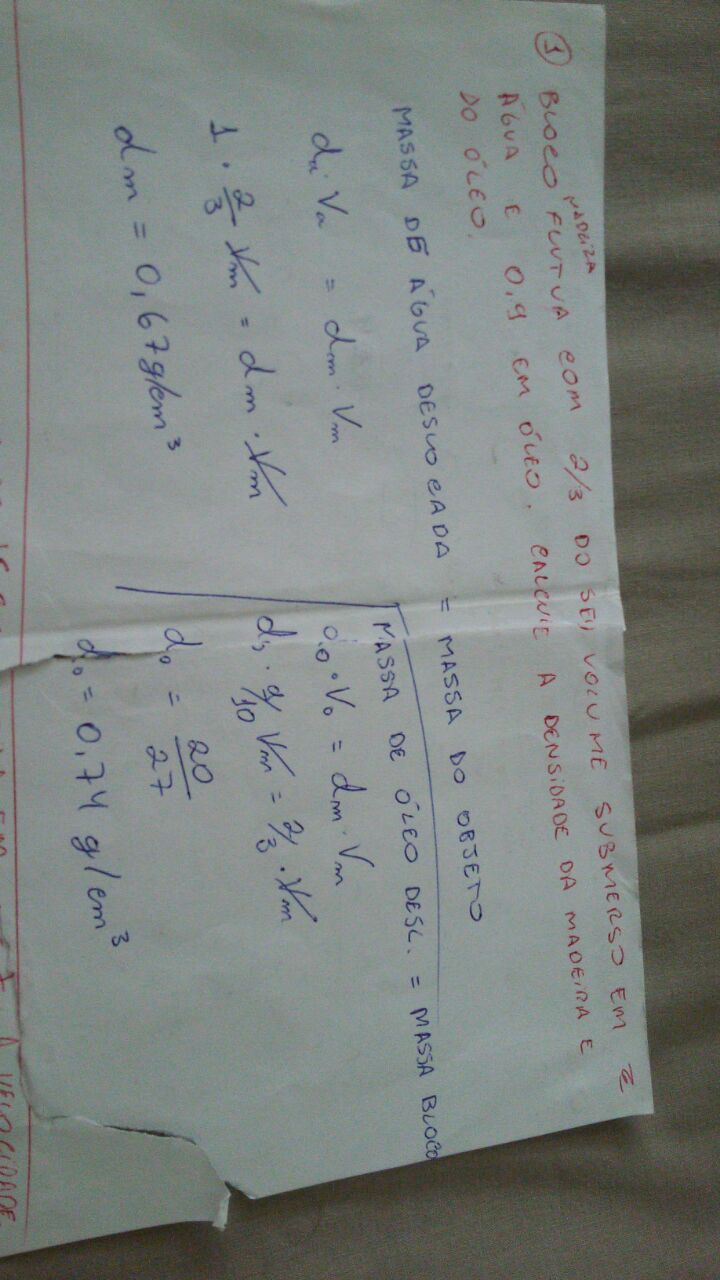 ① BLOCO MADEIRA FLUTUA COM 2/3 DO SEU VOLUME SUBMERSO EM
ÁGUA E 0,9 EM ÓLEO. CALCULE A DENSIDADE DA MADEIRA E
DO ÓLEO.
MASSA DE ÁGUA DESLOCADA = MASSA DO OBJETO
da . Va = dm . Vm
1 . 2/3 Vm = dm . Vm
dm = 0,67g/cm³
MASSA DE ÓLEO DESL. = MASSA BLOCO
. Vo = dm . Vm
. 9/10 Vm = 2/3 . Vm
do = 20/27
do = 0,74 g/cm³
A VELOCIDADE